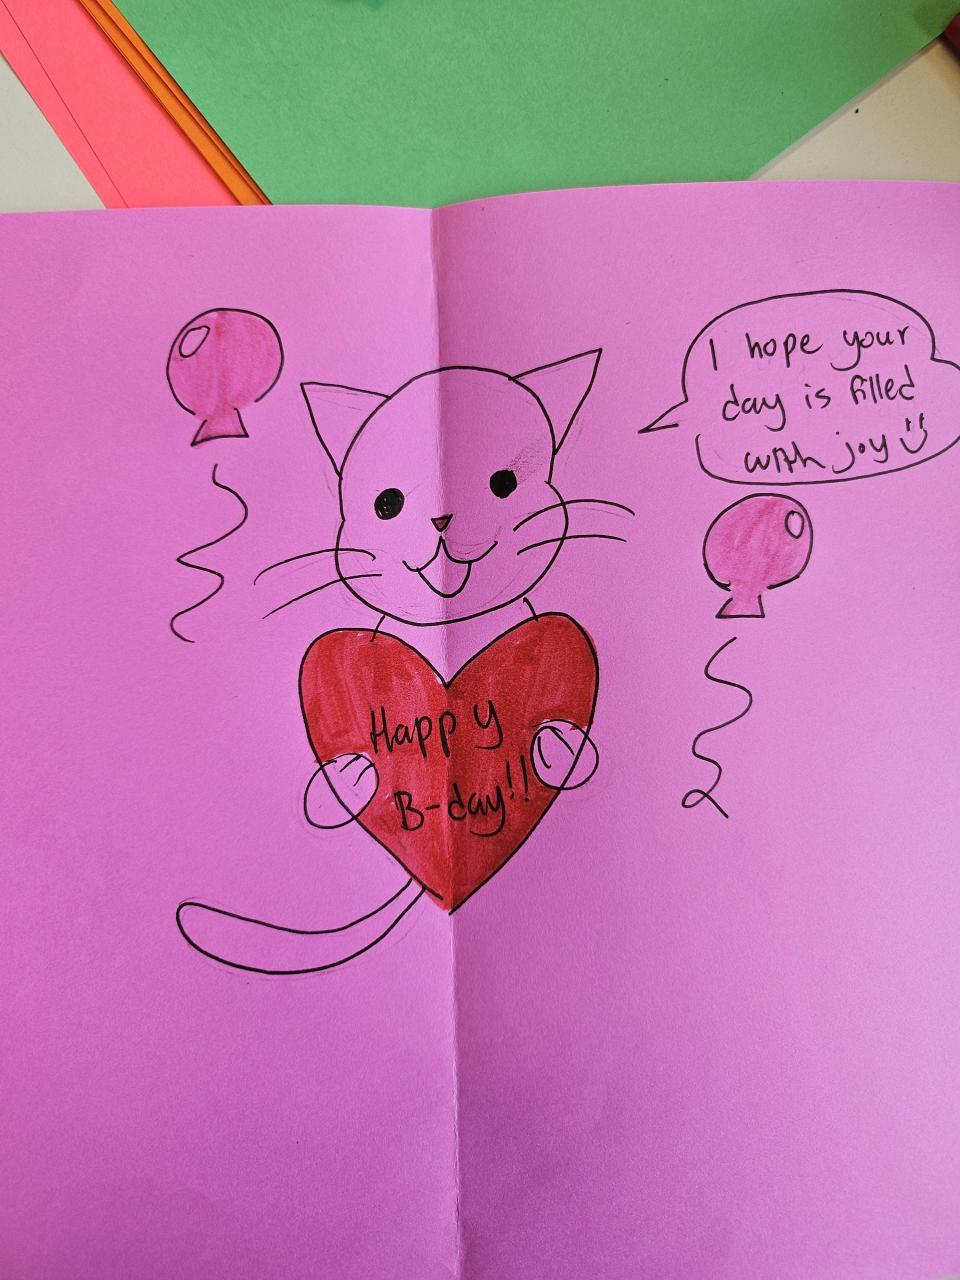 I hope your
day is filled
with joy
Happy
B-day!!